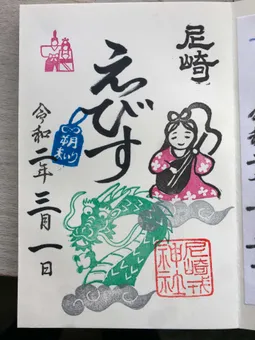 尼崎
えびす
朔
まいり
令和二年三月一日
尼崎戎
神社